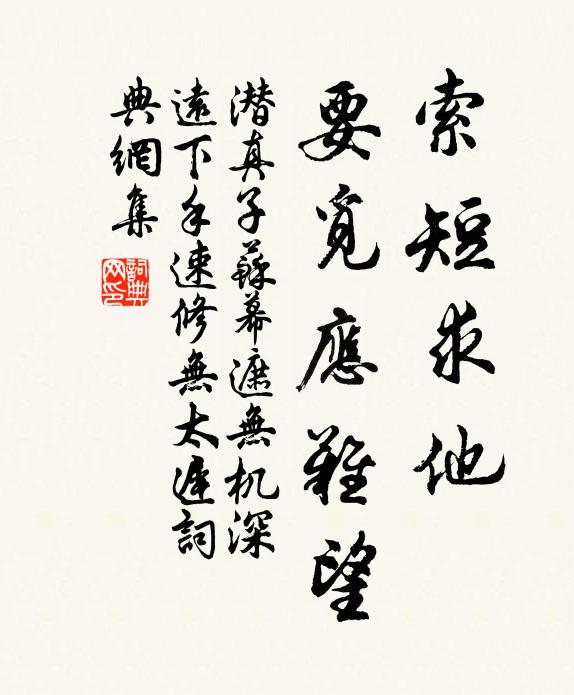 索短求他
要覓應難望
潜真子蘇幕遮無机深
遠下手速修無太遲詞
典網集
詞典網印